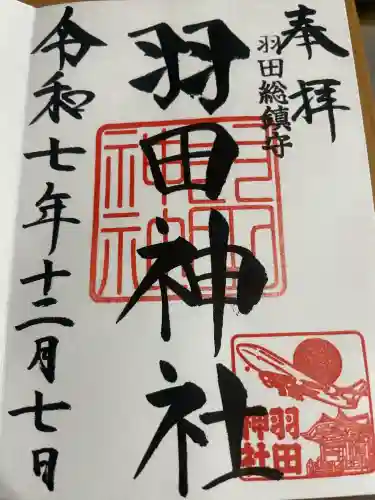 奉拝
羽田総鎮守
羽田神社
令和七年十二月七日
羽田神社
羽田
神社